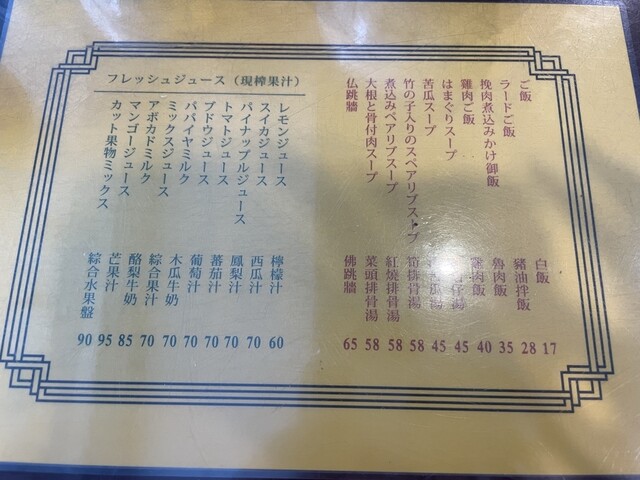 ご飯 白飯 17
ラードご飯 豬油拌飯 28
挽肉煮込みかけ御飯 魯肉飯 35
雞肉ご飯 雞肉飯 40
はまぐりスープ 仔湯 45
苦瓜スープ 瓜湯 45
竹の子入りのスペアリブストプ 筍排骨湯 58
煮込みペアリブスープ 紅燒排骨湯 58
大根と骨付肉スープ 菜頭排骨湯 58
仏跳牆 佛跳牆 65
フレッシュジュース（現榨果汁）
レモンジュース 檸檬汁 60
スイカジュース 西瓜汁 70
パイナップルジュース 鳳梨汁 70
トマトジュース 蕃茄汁 70
ブドウジュース 葡萄汁 70
パパイヤミルク 木瓜牛奶 70
ミックスジュース 綜合果汁 70
アボカドミルク 酪梨牛奶 85
マンゴージュース 芒果汁 95
カット果物ミックス 綜合水果盤 90